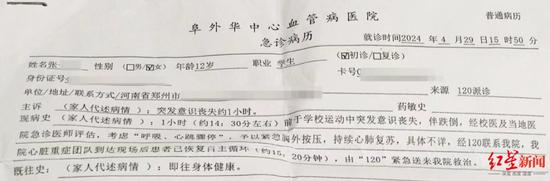 阜外华中心血管病医院
普通病历
急诊病历
就诊时间2024 年 4 月 29日15 时50 分
姓名张 性别 (□男/☑女) 年龄12岁 职业 学生 ☑初诊/□复诊)
身份证号 卡号
单位/地址/联系方式/河南省郑州市 来源 120派诊
主诉 (家人代述病情):突发意识丧失约1小时。 药敏史
现病史(家人代述病情):1小时(约14:30分左右)前于学校运动中突发意识丧失,伴跌倒,经校医及当地医
院急诊医师评估,考虑“呼吸、心跳骤停”,予以紧急胸外按压,持续心肺复苏,具体不详,经120联系我院,我
院心脏重症团队到达现场后患者已恢复自主循环(约15:20分钟),由“120”紧急送来我院救治。
既往史:(家人代述病情):即往身体健康。
红星新闻